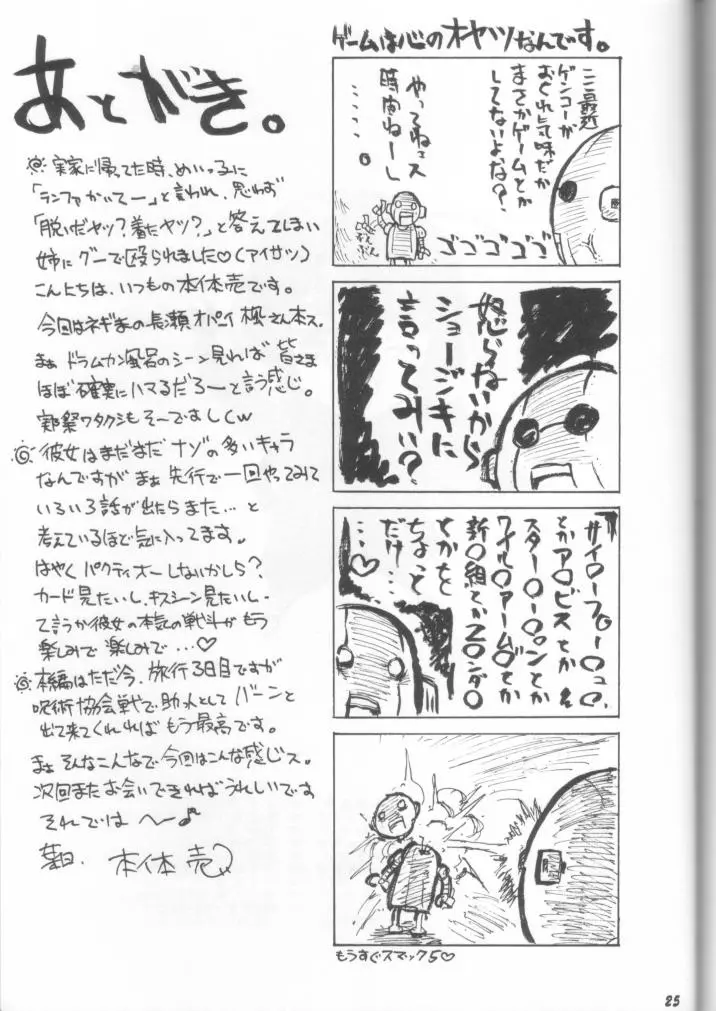 あとがき。
実家に帰ってた時、めいっ子に
「ランファかいてー」と言われ、思わず
「脱いだヤツ?着たヤツ?」と答えてしまい
姉にグーで殴られました♡(アイサツ)
こんにちは、いつもの本体売です。
今回はネギまの長瀬オパーイ楓さん本ス。
まぁドラムカン風呂のシーン見れば皆さま
ほぼ確実にハマるだろーと言う感じ。
実際ワタクシもそーですしくw
彼女はまだまだナゾの多いキャラ
なんですがまぁ先行で一回やってみて
いろいろ話が出たらまた…と
考えているほど気に入ってます。
はやくパクティオーしないかしら?
カード見たいし、キスシーン見たいし、
て言うか彼女の本気の戦斗がもう
楽しみで楽しみで…♡
本編はただ今、旅行3日目ですが
呪術協会戦で助っ人としてバーンと
出て来てくれればもう最高です。
まぁそんなこんなで今回はこんな感じス。
次回またお会いできればうれしいです
それでは〜♪
本体売
ゲームは心のオヤツなんです。
ここ最近
ゲンコーが
おくれ気味だが
まさかゲームとか
してないよな?
やってねェス
時間ねーし
……。
ゴゴゴゴゴ
怒らないから
ショージキに
言ってみい?
サイ○ーフォー○ュ○、
とかア○ビスとか
スター○ー○ンとか
ワイル○アーム○とか
新○組とかZ○ンダ○
とかをと
ちょっと
だけ…
…♡
もうすぐスマック5♡
25